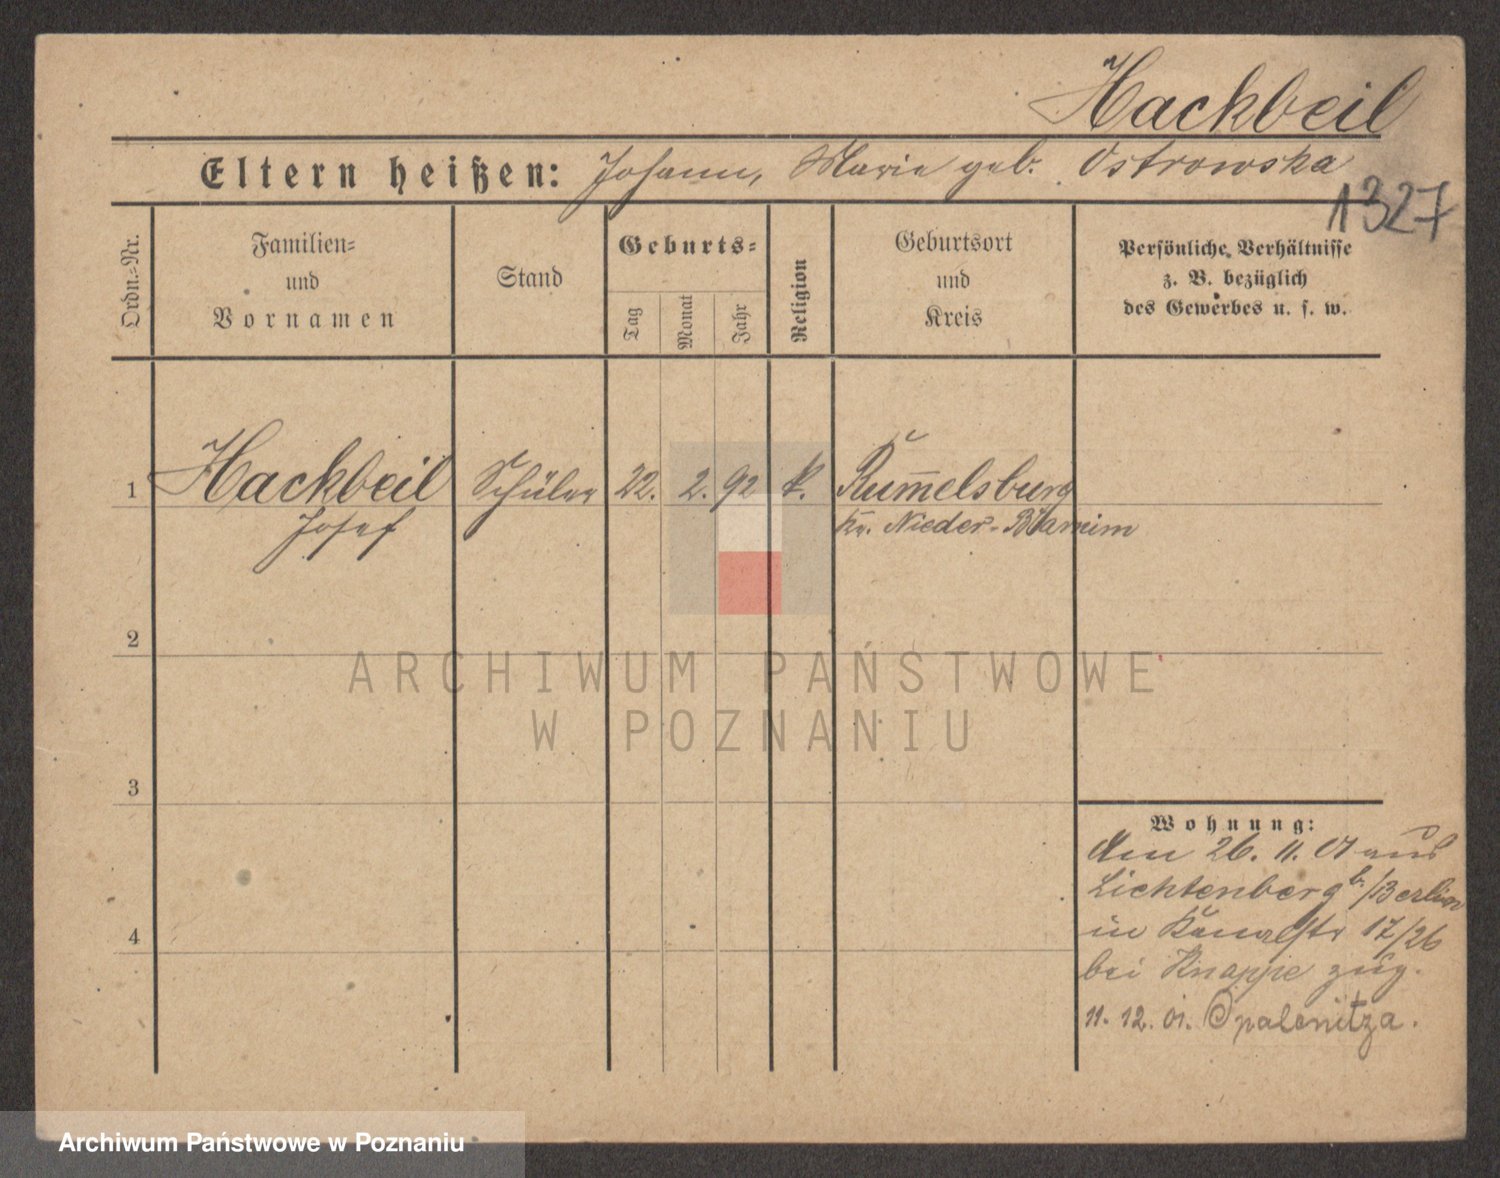 Hackbeil
Eltern heißen: Johann, Marie geb. Ostrowska
1327
Ordn.-Nr.
Familien-
und
Vornamen
Stand
Geburts-
Tag
Monat
Jahr
Religion
Geburtsort
und
Kreis
Persönliche Verhältnisse
z. B. bezüglich
des Gewerbes u. s. w.
1 Hackbeil Schüler 22. 2. 92 k. Rum̅elsburg
Josef Kr. Nieder-Barnim
2
ARCHIWUM PAŃSTWOWE
W POZNANIU
3
Wohnung:
den 26. 11. 01 aus
Lichtenberg b./Berlin
in Kanalstr 17/26
bei Knappe zug.
4
11. 12. 01. Opalenitza.
Archiwum Państwowe w Poznaniu